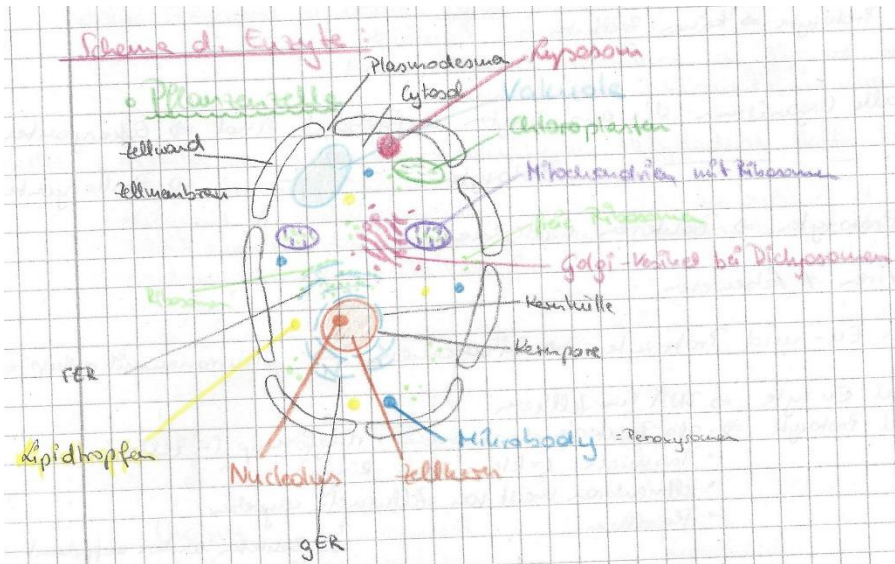 Schema d. Euzyte:
• Pflanzenzelle
Plasmodesma
Cytosol
Lysosom
Vakuole
Chloroplasten
Zellwand
Zellmembran
Mitochondrien mit Ribosomen
freie Ribosomen
Golgi-Vesikel bei Dictyosomen
Ribosomen
Kernhülle
Kernpore
rER
Lipidtropfen
Mikrobody = Peroxysomen
Nucleolus
Zellkern
gER